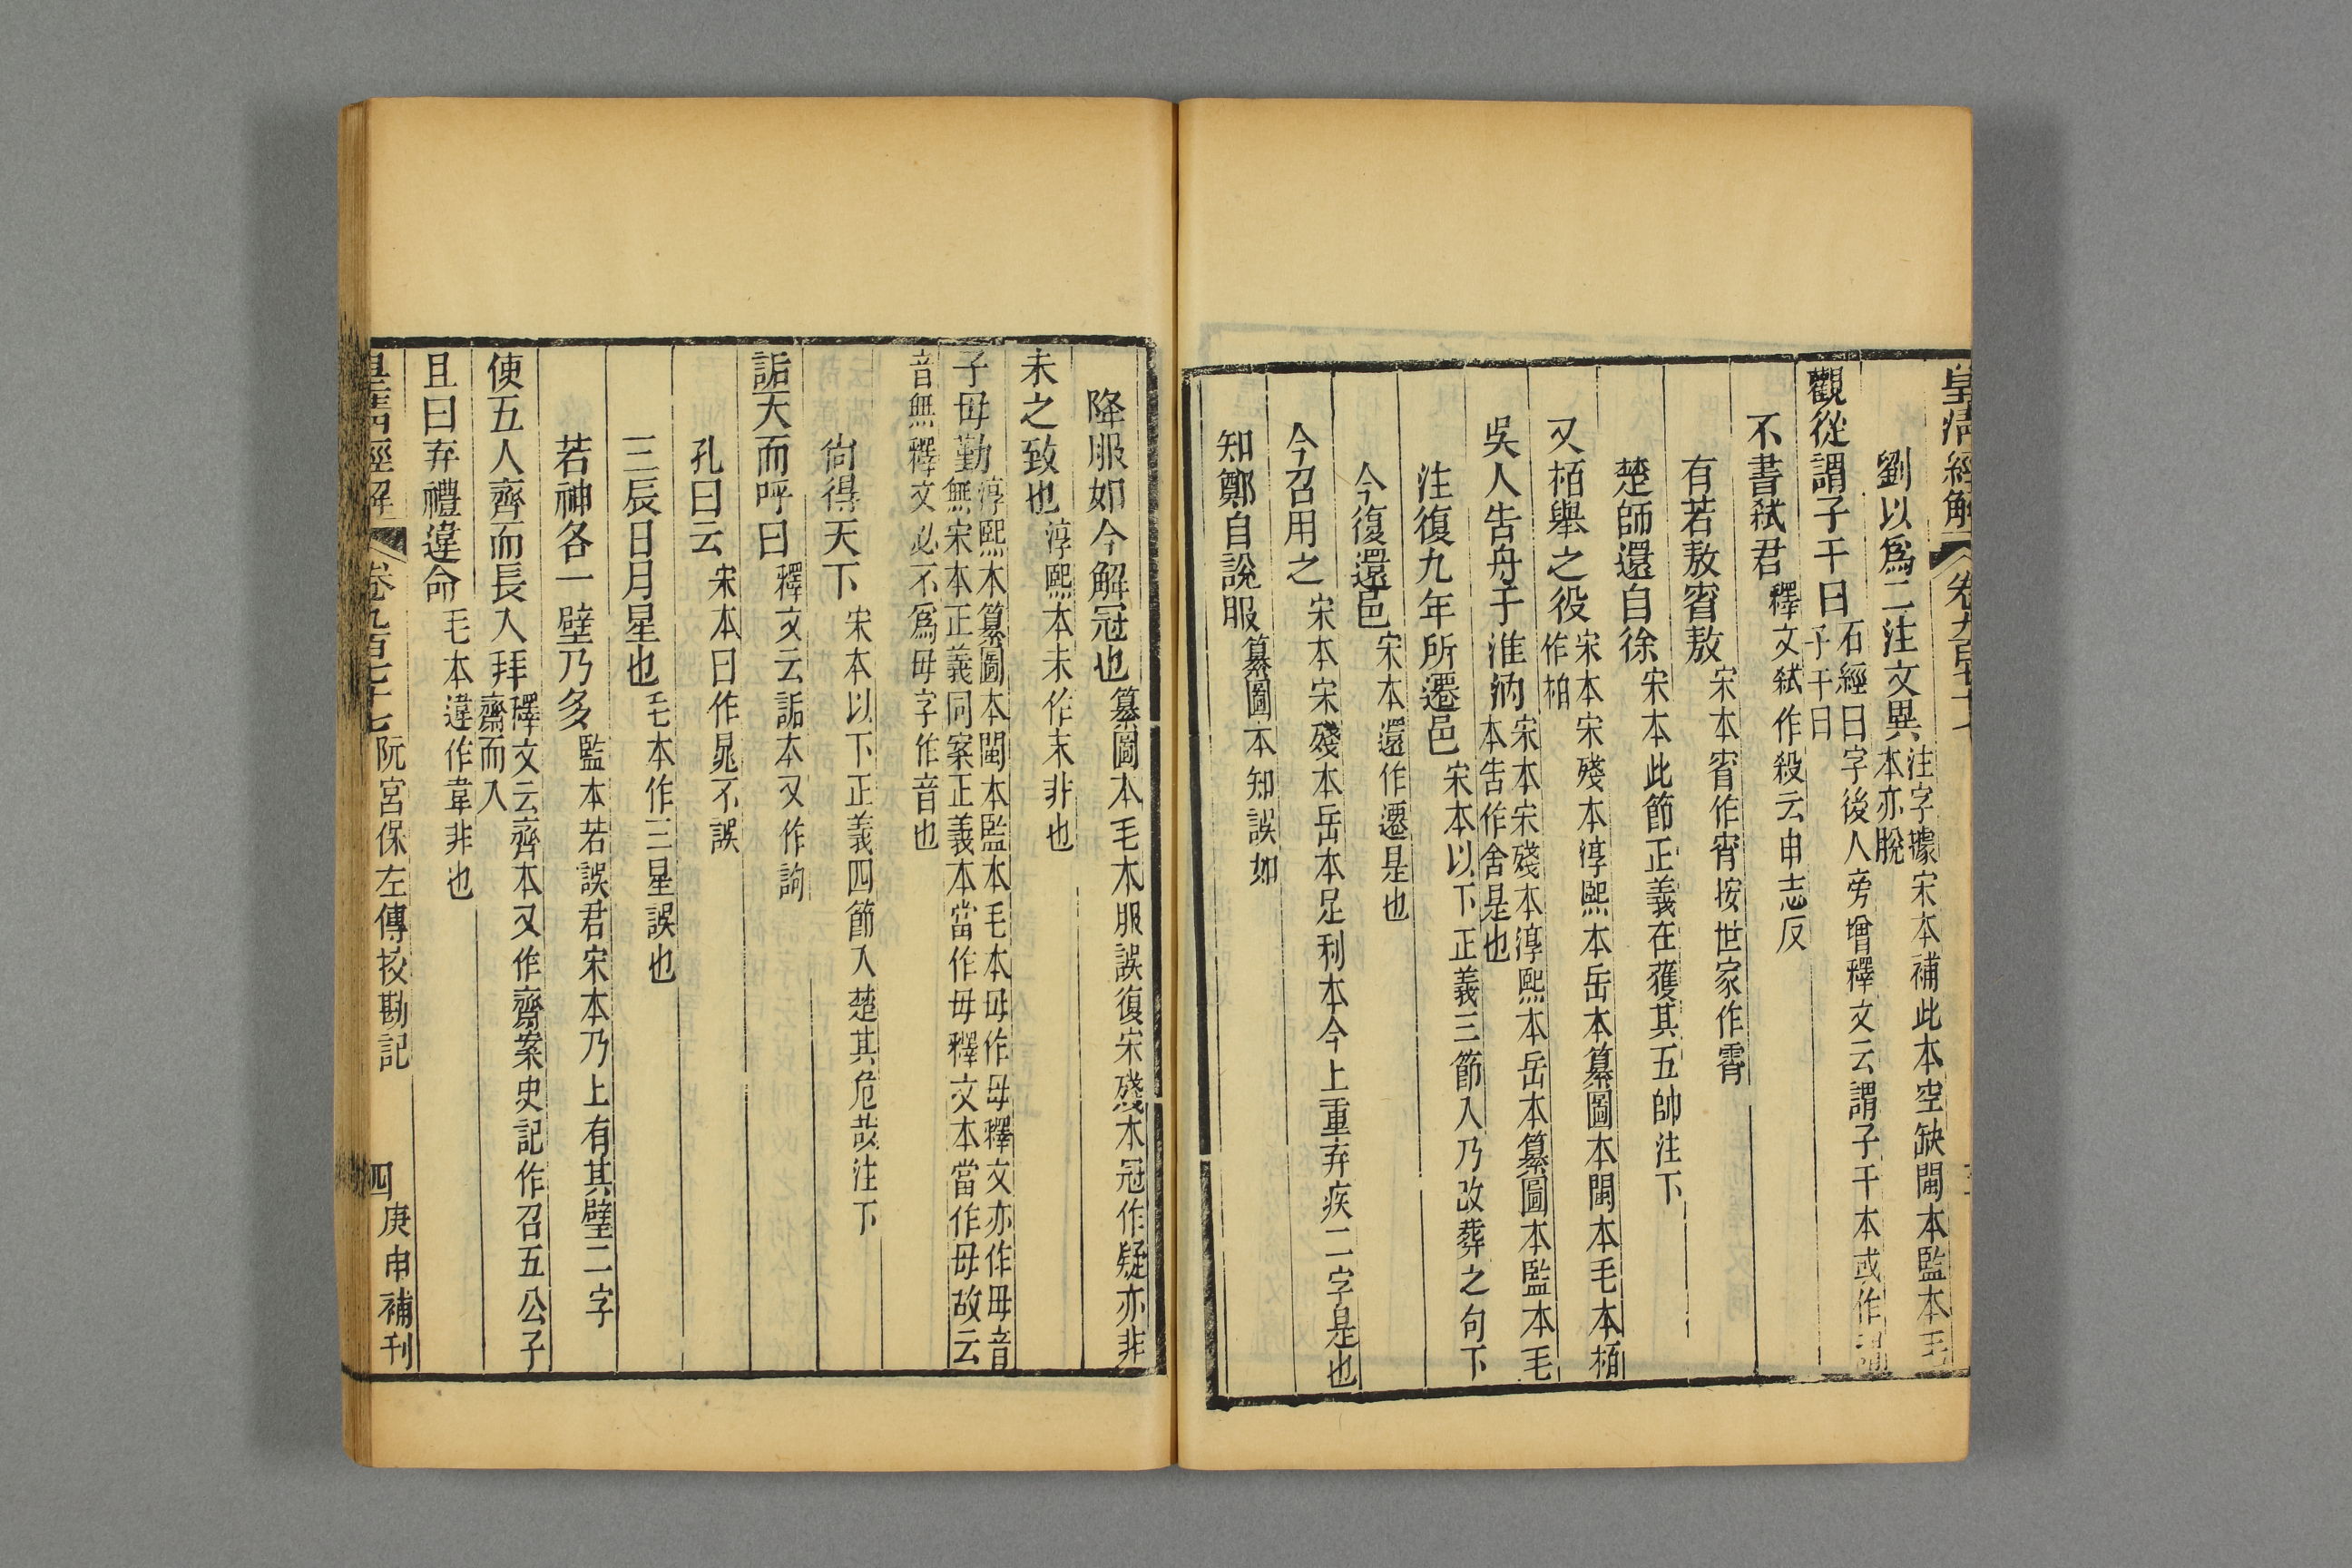 皇清經解 卷九百七十七
劉以爲二注文異 注字據宋本補此本空缺閩本監本毛
本亦脫
觀從謂子干曰 石經曰字後人旁增釋文云謂子干本或作
子干曰
不書弒君 釋文弒作殺云申志反
有若敖𡨋敖 宋本𡨋作宵按世家作霄
楚師還自徐 宋本此節正義在獲其五帥注下
又栢舉之役 宋本宋殘本淳熙本岳本纂圖本閩本毛本栢
作柏
吳人告舟于淮汭 宋本宋殘本淳熙本岳本纂圖本監本毛
本告作舍是也
注復九年所遷邑 宋本以下正義三節入乃改葬之句下
今復還邑 宋本還作遷是也
今召用之 宋本宋殘本岳本足利本今上重弃疾二字是也
知鄭自說服 纂圖本知誤如
降服如今解冠也 纂圖本毛本服誤復宋殘本冠作疑亦非
未之致也 淳熙本未作末非也
子毋勤 淳熙本纂圖本閩本監本毛本毋作母釋文亦作毋音
無宋本正義同案正義本當作毋釋文本當作毋故云
音無釋文必不爲毋字作音也
尙得天下 宋本以下正義四節入楚其危哉注下
詬天而呼曰 釋文云詬本又作訽
孔曰云 宋本曰作晁不誤
三辰日月星也 毛本作三星誤也
若神各一璧乃多 監本若誤君宋本乃上有其璧二字
使五人齊而長入拜 釋文云齊本又作齋案史記作召五公子
齋而入
且曰弃禮違命 毛本違作韋非也
皇淸經解 卷九百七十七 阮宮保左傳挍勘記 四 庚申補刊